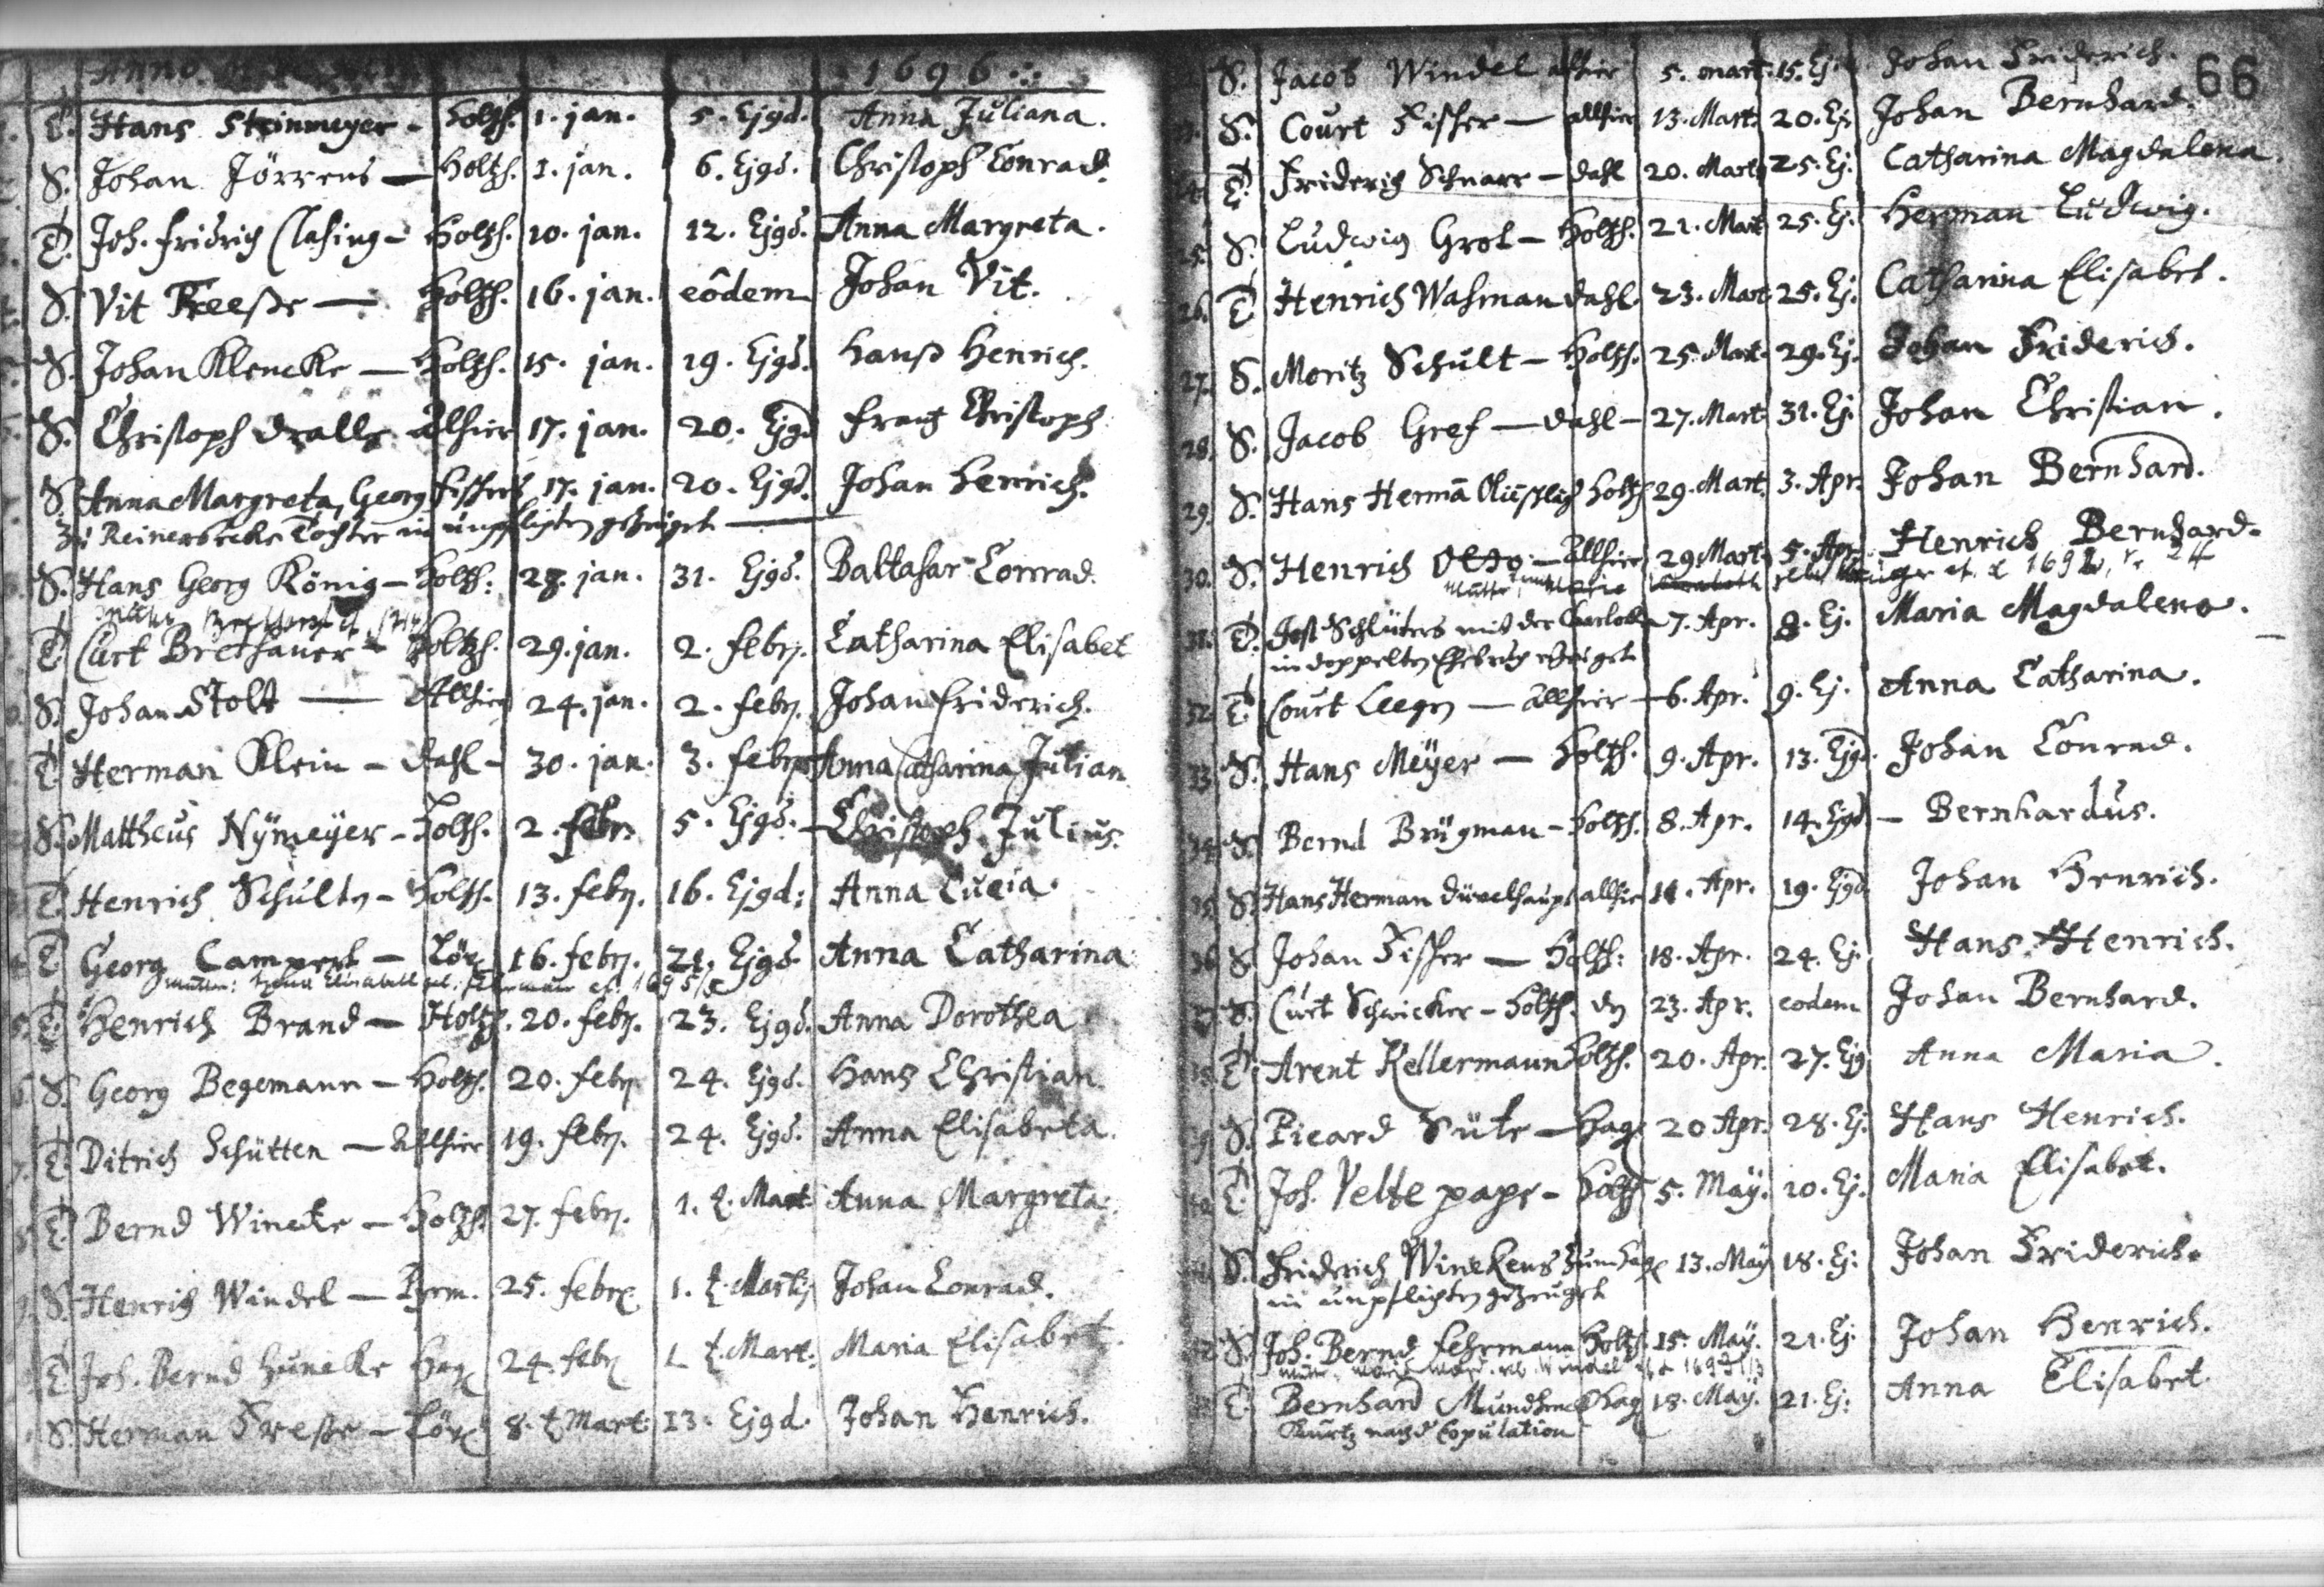 Anno 1696
T. Hans Steinmeyer - Holtzh. 1. jan. 5. Ejgd. Anna Juliana.
S. Johan Jörrens — Holtzh. 1. jan. 6. Ejgd. Christoph Conrad.
T. Joh. fridrich Clasing - Holtzh. 10. jan. 12. Ejgd. Anna Margreta.
S. Vit Freesse — Holtzh. 16. jan. eôdem Johan Vit.
S. Johan Klencke — Holtzh. 15. jan. 19. Ejgd. Hanß Henrich.
S. Christoph dralle allhier 17. jan. 20. Ejgd. frantz Christoph
S. Anna Margreta, Georg fischers 17. jan. 20. Ejgd. Johan Henrich.
Zu Reinerbeke Tochter in unpflichten gezeuget —
S. Hans Georg König - Holtzh. 28. jan. 31. Ejgd. Baltasar Conrad.
T. Curt Brethauer - Holtzh. 29. jan. 2. febr. Catharina Elisabet
S. Johan Stolt — Allhier 24. jan. 2. febr. Johan friderich.
T. Herman Klein - dahl - 30. jan. 3. febr. Anna Catharina Julian
S. Mattheus Nÿmeÿer - Holtzh. 2. febr. 5. Ejgd. - Christoph Julius.
T. Henrich Schulte - Holtzh. 13. febr. 16. Ejgd: Anna Lucia.
T. Georg Campert - 16. febr. 21. Ejgd. Anna Catharina
T. Henrich Brand — Holtzh. 20. febr. 23. Ejgd. Anna Dorothea
S. Georg Begemann - Holtzh. 20. febr. 24. Ejgd. Hans Christian
T. Ditrich Schütten — Allhier 19. febr. 24. Ejgd. Anna Elisabeta.
T. Bernd Winecke — Holtzh. 27. febr. 1. t. Mart. Anna Margreta.
S. Henrich Windel — Pyrm. 25. febr. 1. t. Martij Johan Conrad.
T. Joh. Bernd Huneke Hag. 24. febr. 1. t. Mart: Maria Elisabet.
S. Herman Fresse — 8. t. Mart: 13. Ejgd. Johan Henrich.
66
S. Jacob Windel allhier 5. mart. 15. Ej. Johan Friderich.
S. Court Fischer — allhier 13. Mart. 20. Ej. Johan Bernhard.
T. Friderich Schnarr — dahl 20. Mart. 25. Ej. Catharina Magdalena.
25. S. Ludwig Grot — Holtzh. 21. Mart. 25. Ej. Herman Ludwig.
26. T. Henrich Wasman dahl 23. Mart. 25. Ej. Catharina Elisabet.
27. S. Moritz Schult — Holtzh. 25. Mart. 29. Ej. Johan Friderich.
28. S. Jacob Gref — dahl - 27. Mart. 31. Ej. Johan Christian.
29. S. Hans Hermā Holtzh 29. Mart. 3. Apr. Johan Bernhard.
30. S. Henrich Otto - Allhier 29. Mart. 5. Apr. Henrich Bernhard.
31. T. Jost Schlüters mit der 7. Apr. 8. Ej. Maria Magdalena.
in doppelten Ehebruch gezeuget
32. T. Court Leegen — allhier - 6. Apr. 9. Ej. Anna Catharina.
33. S. Hans Meÿer — Holtzh. 9. Apr. 13. Ejgd. Johan Conrad.
34. S. Bernd Brügman - Holtzh. 8. Apr. 14. Ejgd - Bernhardus.
35. S. Hans Herman düvelhaupt allhier 11. Apr. 19. Ejgd. Johan Henrich.
36. S. Johan Fischer — Holtzh: 18. Apr. 24. Ej. Hans Henrich.
S. Curt Schwicker - Holtzh. den 23. Apr. eodem Johan Bernhard.
T. Arent Kellermann Holtzh. 20. Apr. 27. Ejg. Anna Maria.
S. Picard Süte — Hag. 20 Apr. 28. Ej. Hans Henrich.
T. Joh. Velte pape - Holtzh 5. Maÿ. 10. Ej. Maria Elisabet.
S. Friderich Winekens zum Hage 13. May 18. Ej. Johan Friderich.
in unpflichten gezeuget
S. Joh. Bernd Fehrmann Holtzh. 15. Maÿ. 21. Ej. Johan Henrich.
T. Bernhard Mundhenke Hag 18. Maÿ. 21. Ej: Anna Elisabet.
Kurtz nach d. Copulation